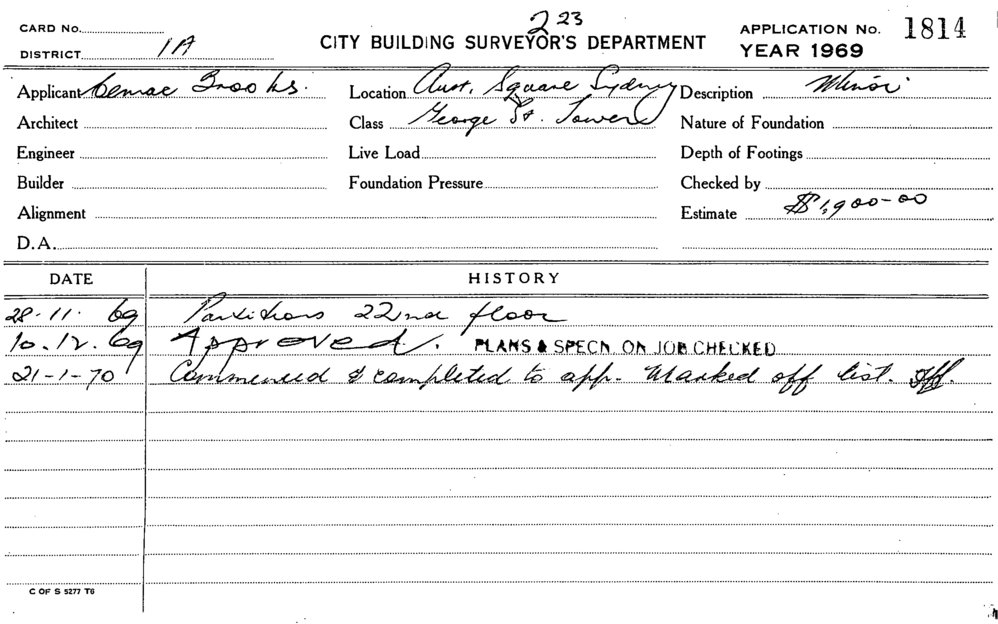 223
CARD No.
DISTRICT 1A
CITY BUILDING SURVEYOR'S DEPARTMENT
APPLICATION No. 1814
YEAR 1969
Applicant Cemac Brooks. Location Aust. Square Sydney Description Minor
Architect Class George St. Tower Nature of Foundation
Engineer Live Load Depth of Footings
Builder Foundation Pressure Checked by
Alignment Estimate $1,900-00
D.A.
DATE HISTORY
28.11.69 Partitions 22nd floor
10.12.69 Approved. PLANS & SPECN. ON JOB CHECKED
21-1-70 Commenced & completed to app. Marked off list.
C OF S 5277 TG